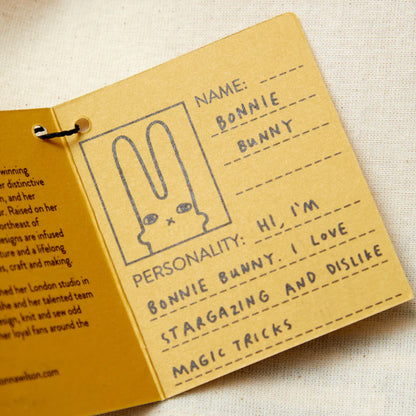 winning
er distinctive
n, and her
r. Raised on her
ortheast of
esigns are infused
ture and a lifelong
rs, craft and making.
hed her London studio in
he and her talented team
esign, knit and sew odd
er loyal fans around the
nnawilson.com
NAME:
BONNIE
BUNNY
PERSONALITY: HI, I'M
BONNIE BUNNY. I LOVE
STARGAZING AND DISLIKE
MAGIC TRICKS